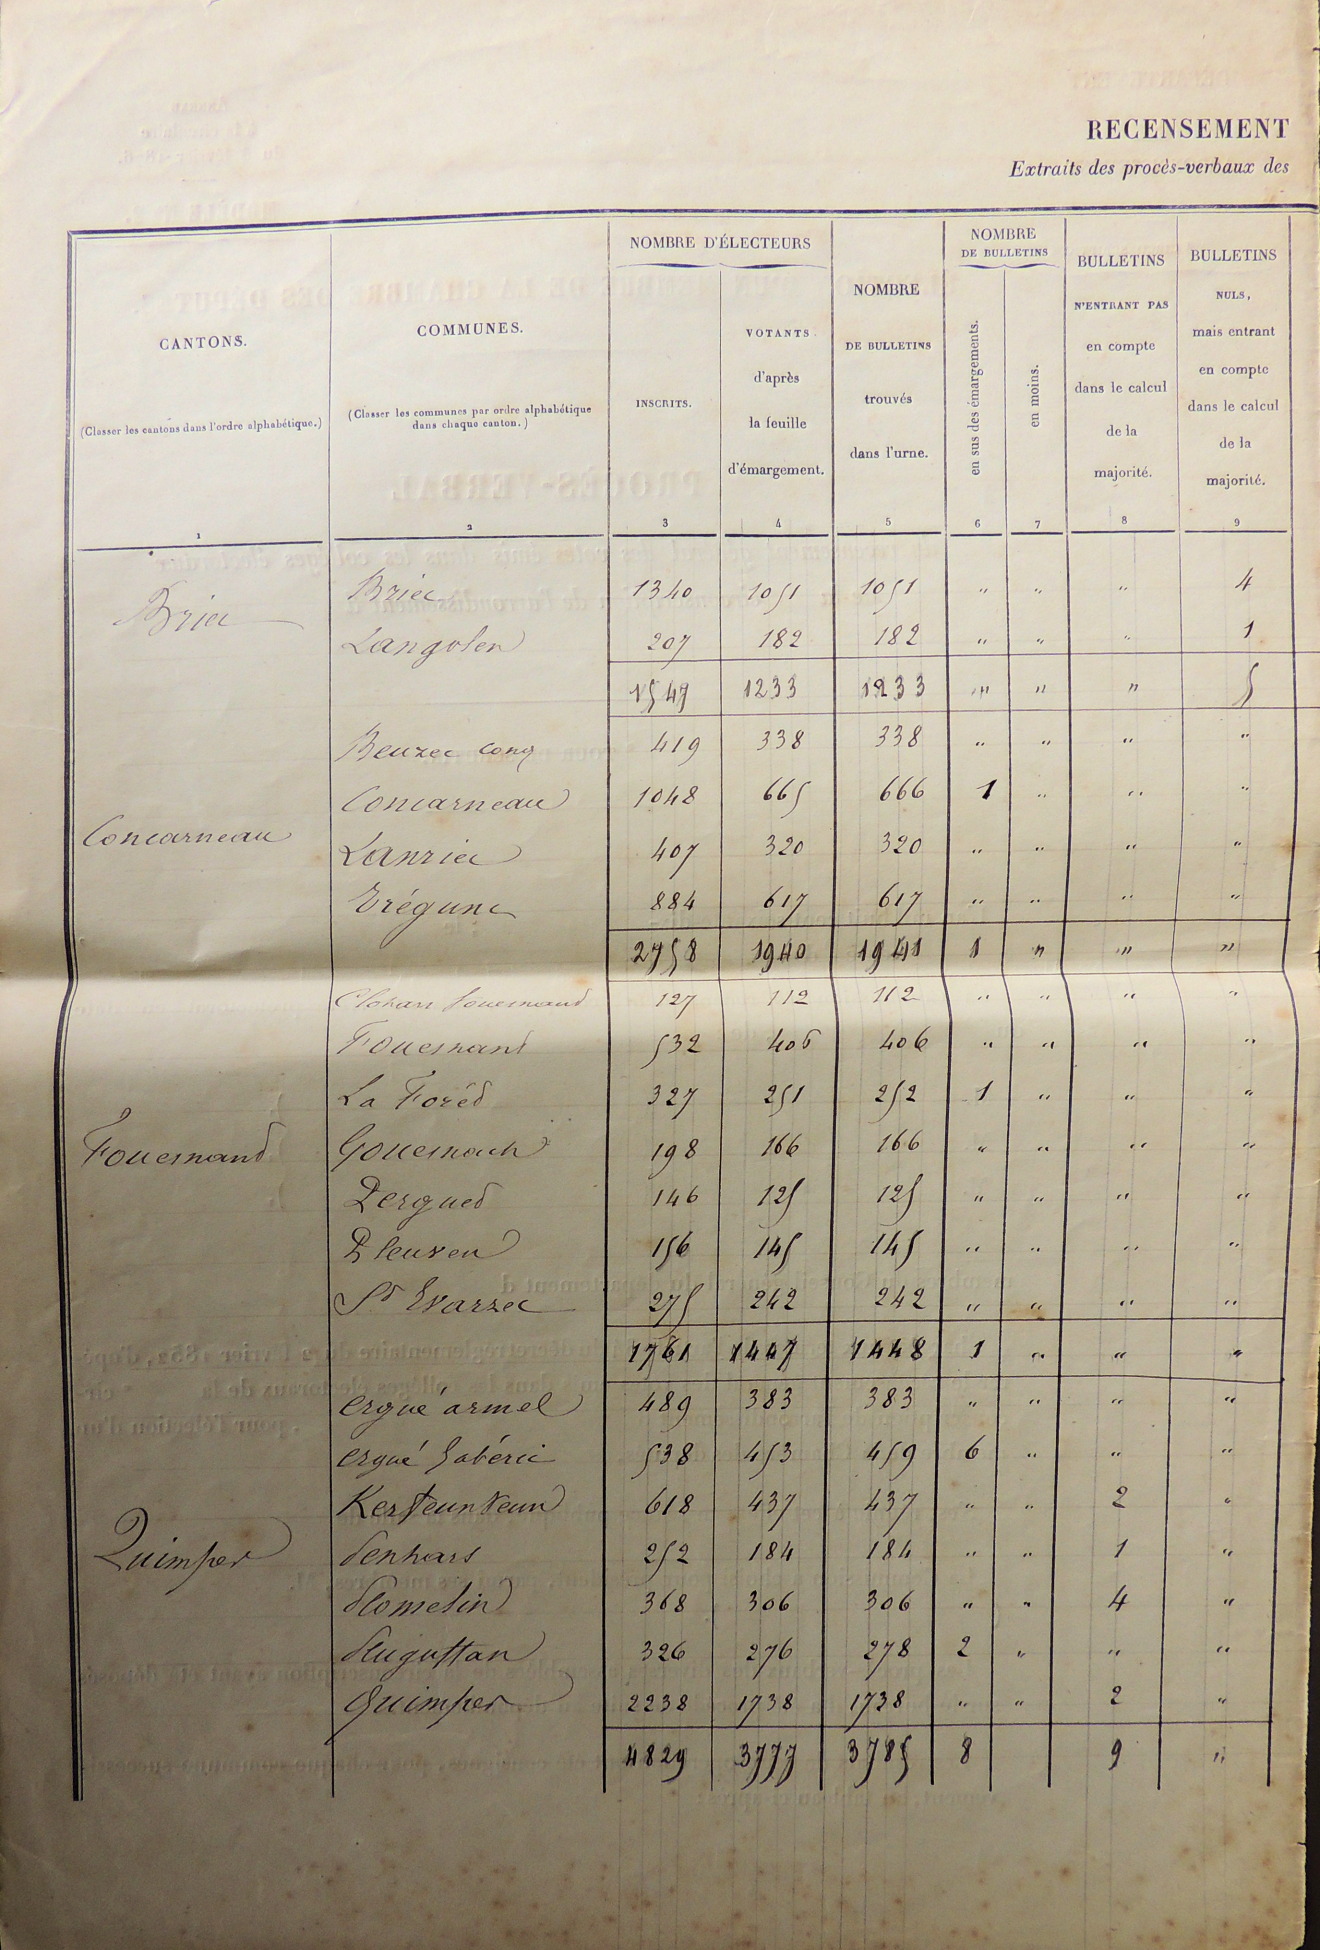 RECENSEMENT
Extraits des procès-verbaux des
CANTONS.
(Classer les cantons dans l'ordre alphabétique.)
1
COMMUNES.
(Classer les communes par ordre alphabétique
dans chaque canton.)
2
NOMBRE D'ÉLECTEURS
INSCRITS.
3
VOTANTS
d'après
la feuille
d'émargement.
4
NOMBRE
DE BULLETINS
trouvés
dans l'urne.
5
NOMBRE
DE BULLETINS
en sus des émargements.
6
en moins.
7
BULLETINS
N'ENTRANT PAS
en compte
dans le calcul
de la
majorité.
8
BULLETINS
NULS,
mais entrant
en compte
dans le calcul
de la
majorité.
9
Briec Briec 1340 1051 1051 " " " 4
Langolen 207 182 182 " " " 1
1547 1233 1233 " " " 5
Beuzec conq 419 338 338 " " " "
Concarneau 1048 665 666 1 " " "
Concarneau
Lanriec 407 320 320 " " " "
Trégunc 884 617 617 " " " "
2758 1940 1941 1 " " "
Clohars fouesnand 127 112 112 " " " "
Fouesnant 532 406 406 " " " "
La Forêd 327 251 252 1 " " "
Fouesnand Gouesnach 198 166 166 " " " "
Pergued 146 125 125 " " " "
Pleuven 156 145 145 " " " "
St Evarzec 275 242 242 " " " "
1761 1447 1448 1 " " "
ergué armel 489 383 383 " " " "
ergué Gabéric 538 453 459 6 " " "
Kerfeunteun 618 437 437 " " 2 "
Quimper Penhars 252 184 184 " " 1 "
Plomelin 368 306 306 " " 4 "
Pluguffan 326 276 278 2 " " "
Quimper 2238 1738 1738 " " 2 "
4829 3777 3785 8 9 "